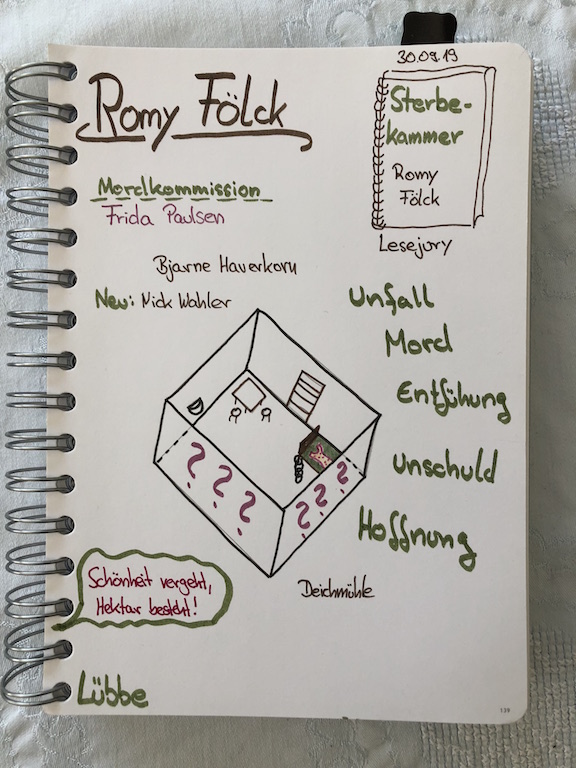 30.09.19
Romy Fölck
Sterbe-
kammer
Romy
Fölck
Lesejury
Mordkommission
Frida Paulsen
Bjarne Haverkorn
Neu: Nick Wahler
Unfall
Mord
Entfühung
Unschuld
Hoffnung
? ? ?
? ? ?
Schönheit vergeht,
Hektar besteht!
Deichmühle
Lübbe
139